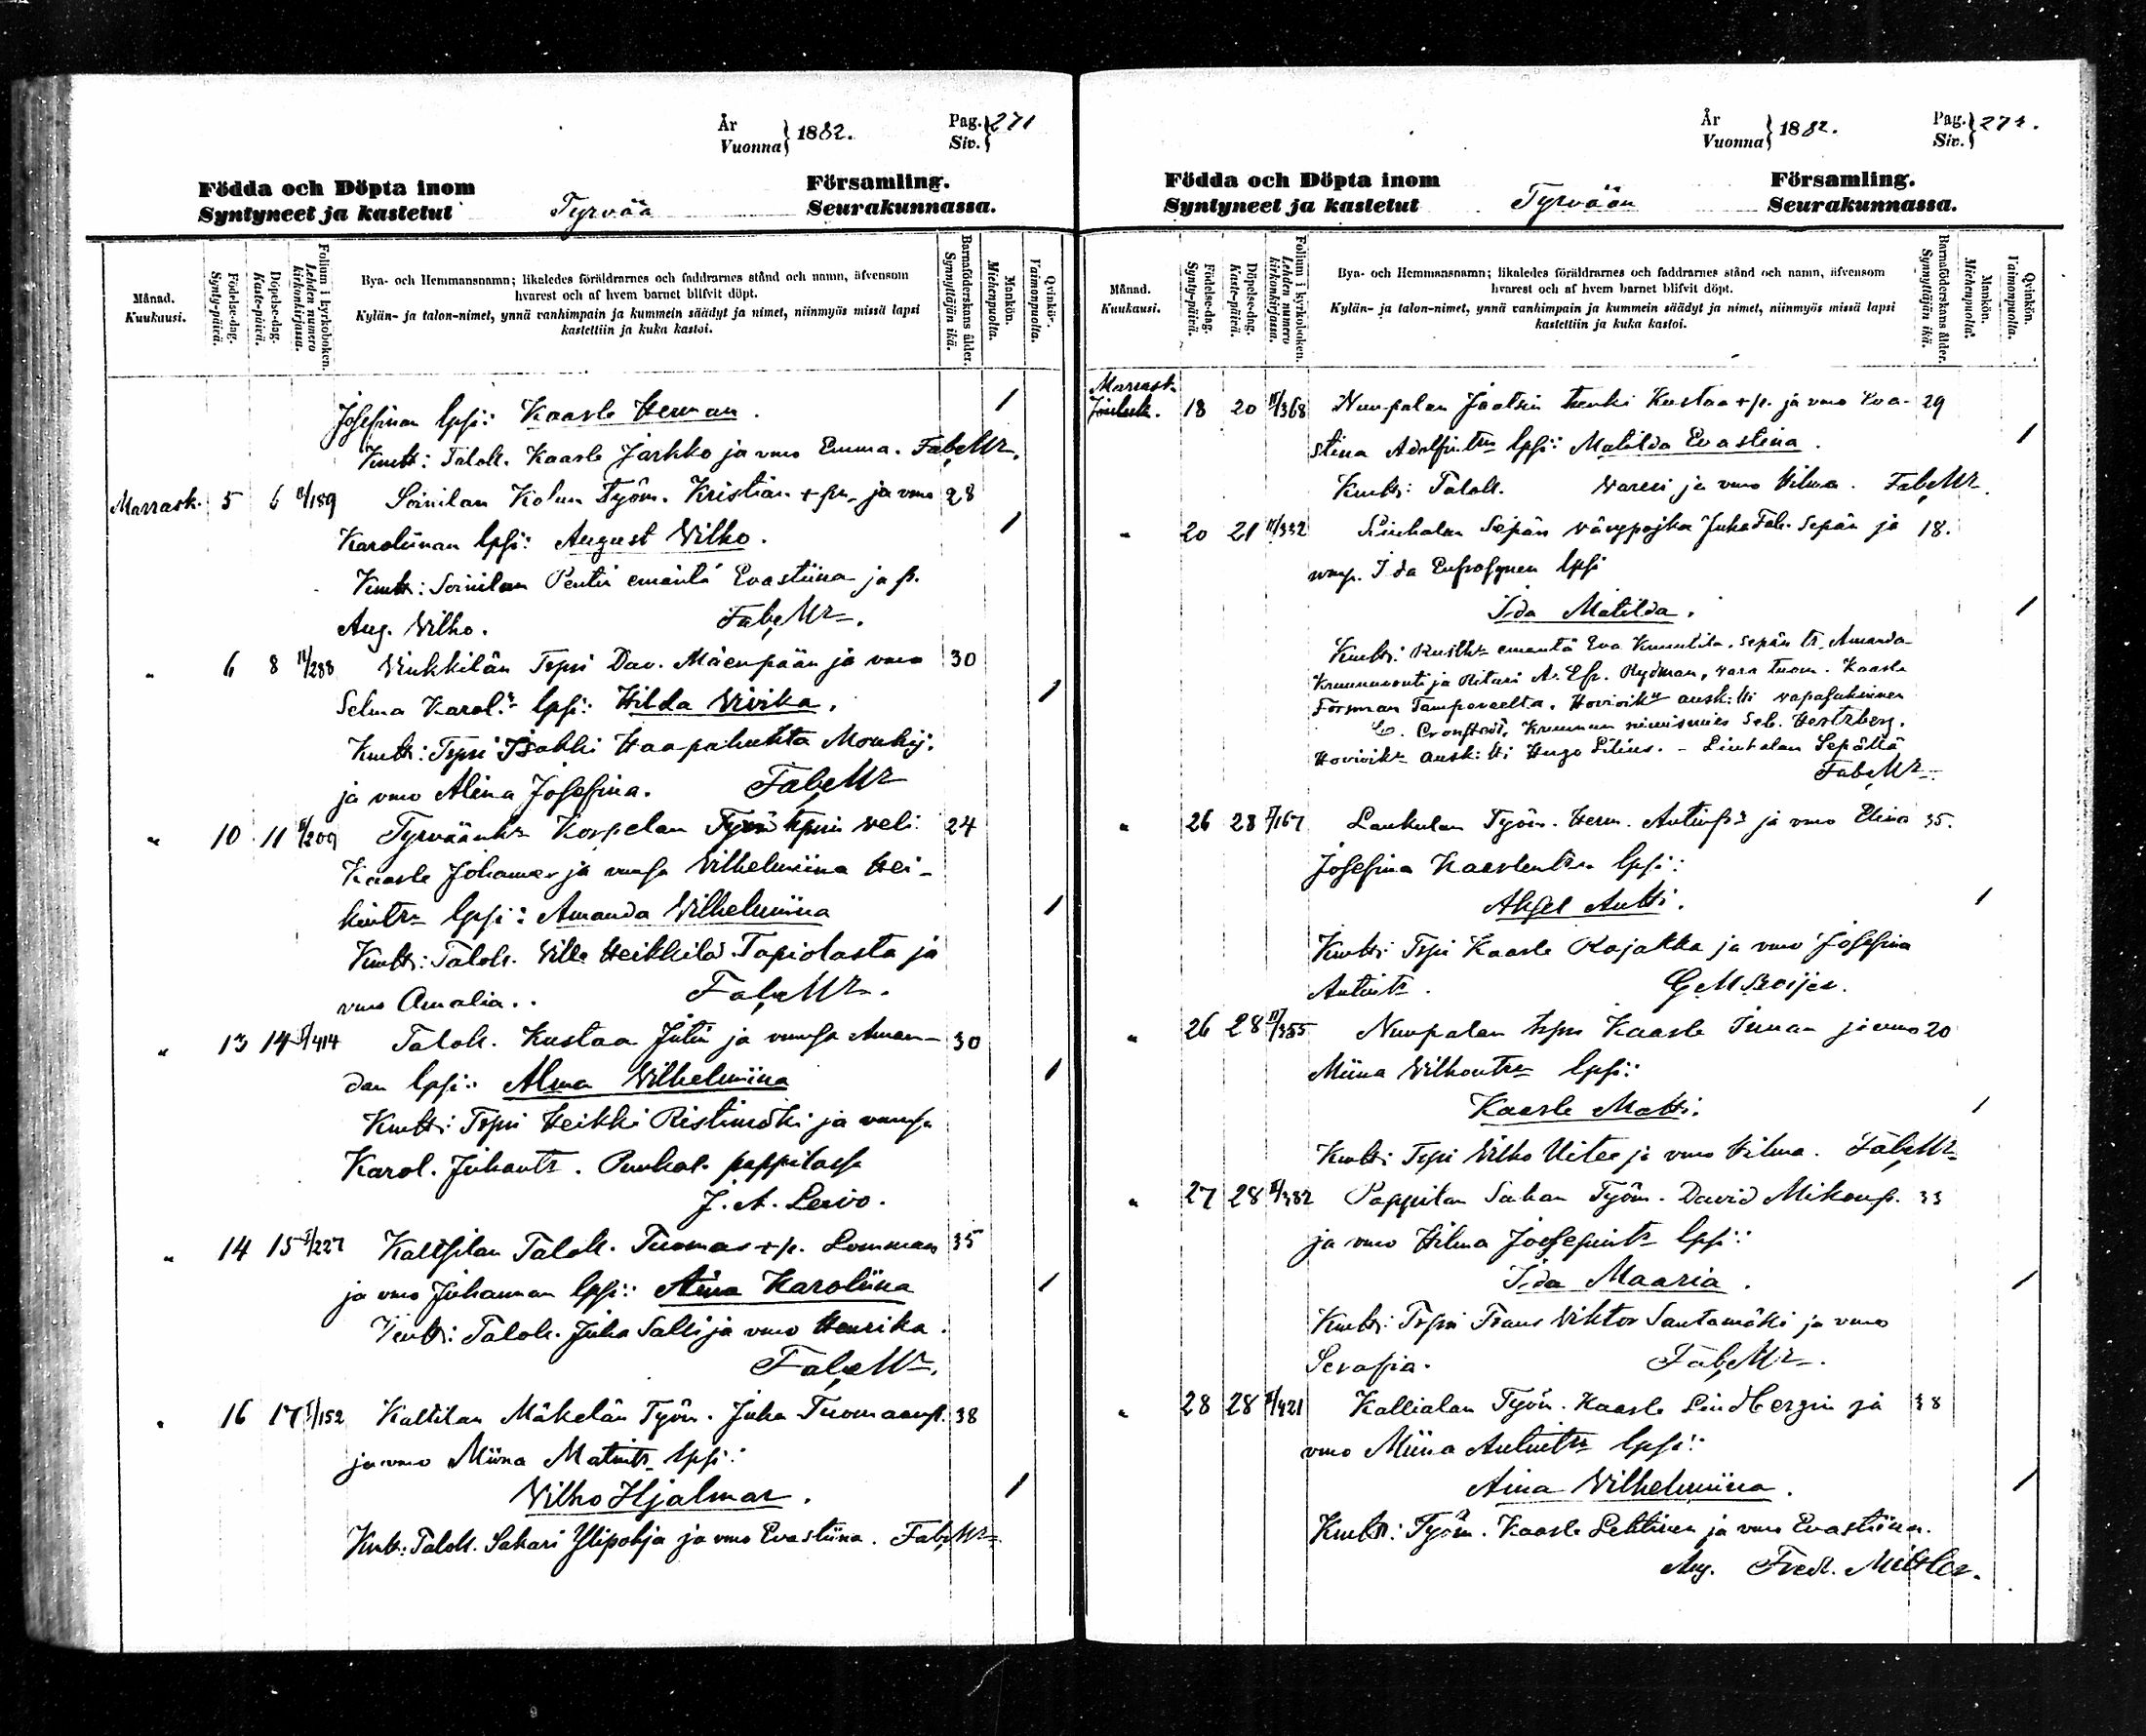 År
Vuonna } 1882.
Pag.
Siv. } 271
Födda och Döpta inom
Syntyneet ja kastetut
Tyrvää
Församling.
Seurakunnassa.
Månad.
Kuukausi.
Födelse-dag.
Synty-päivä.
Döpelse-dag.
Kaste-päivä.
Folium i kyrkoboken.
Lehden numero kirkonkirjassa.
Bya- och Hemmansnamn; likaledes föräldrarnes och faddrarnes stånd och namn, äfvensom
hvarest och af hvem barnet blifvit döpt.
Kylän- ja talon-nimet, ynnä vanhimpain ja kummein säädyt ja nimet, niinmyös missä lapsi
kastettiin ja kuka kastoi.
Barnaföderskans ålder.
Synnyttäjän ikä.
Mankön.
Miehenpuolta.
Qvinkön.
Vaimonpuolta.
Josefinan lpsi: Kaarle Herman. 1
Kmtt: Talok. Kaarle Jarkko ja vmo Emma. Fab. Mr.
Marrask. 5 6 /189 Soinilan Kolun Työm. Kristian ja vmo 28
Karoliinan lpsi: August Vilho. 1
Kmtt: Soinilan Pentin emäntä Evastiina ja p.
Aug. Vilho. Fab. Mr.
" 6 8 /288 Vinkkilän Tpri Dav. Mäenpään ja vmo 30
Selma Karol. lpsi: Hilda Vivika. 1
Kmtt: Tpri Isakki Haapahuhta Moukij.
ja vmo Alina Josefina. Fab. Mr
" 10 11 /209 Korpelan veli 24
Kaarle Johannes ja vmsa Vilhelmiina Hei-
kintr lpsi: Amanda Vilhelmiina 1
Kmtt: Talok. Ville Heikkilä Tapiolasta ja
vmo Amalia. Fab. Mr.
" 13 14 /414 Talok. Kustaa Jutin ja vmsa Aman- 30
dan lpsi: Alma Vilhelmiina 1
Kmtt: Tpri Heikki Ristimäki ja vmsa
Karol. Juhantr. pappilassa
J. A. Leivo.
" 14 15 /227 Kaltsilan Talok. Tuomas Lomman 35
ja vmo Johannan lpsi: Aina Karoliina 1
Kmtt: Talok. Juha Salli ja vmo Henrika.
Fab. Mr.
" 16 17 /152 Kaltilan Mäkelän Työm. Juha Tuomaanp. 38
ja vmo Miina Matintr. lpsi:
Vilho Hjalmar. 1
Kmtt: Talok. Sakari Ylipohja ja vmo Evastiina. Fab. Mr.
År
Vuonna } 1882.
Pag.
Siv. } 272.
Födda och Döpta inom
Syntyneet ja kastetut
Tyrvään
Församling.
Seurakunnassa.
Månad.
Kuukausi.
Födelse-dag.
Synty-päivä.
Döpelse-dag.
Kaste-päivä.
Folium i kyrkoboken.
Lehden numero kirkonkirjassa.
Bya- och Hemmansnamn; likaledes föräldrarnes och faddrarnes stånd och namn, äfvensom
hvarest och af hvem barnet blifvit döpt.
Kylän- ja talon-nimet, ynnä vanhimpain ja kummein säädyt ja nimet, niinmyös missä lapsi
kastettiin ja kuka kastoi.
Barnaföderskans ålder.
Synnyttäjän ikä.
Mankön.
Miehenpuolta.
Qvinkön.
Vaimonpuolta.
Marrask.
18 20 /368 Nuupalan Jaatsin Kustaa ja vmo Eva- 29
stina Adolfintr lpsi: Matilda Evastina. 1
Kmtt: Talok. Varesi ja vmo Hilma. Fab. Mr.
" 20 21 /332 Liuhalan Sepän vävypojka Juha Fab. Sepän ja 18.
vmp. Ida Eufrosynen lpsi
Ida Matilda. 1
Kmtt: emäntä Eva, Sepän tr. Amanda
Kruununvouti ja Ritari A. Ef. Rydman, vara tuom. Kaarle
Forsman Tampereelta, Hovioik ausk: vapasukuinen
C. Cronstedt, Kruunun nimismies Seb. Hertzberg,
Hovioik ausk: Hugo Lilius. - Liuhalan Sepällä
Fab. Mr.
" 26 28 /167 Laukulan Työm. Herm. Antinp. ja vmo Elina 35.
Josefina Kaarlentr. lpsi:
Aksel Antti. 1
Kmtt: Tpri Kaarle Rajakka ja vmo Josefina
Antintr. G. M. Broijer.
" 26 28 /355 Nuupalan tpri Kaarle Junan ja vmo 20
Miina Vilhontr lpsi:
Kaarle Matti. 1
Kmtt: Tpri Vilho Uitee ja vmo Hilma. Fab. Mr
" 27 28 /332 Pappilan Sahan Työm. David Mikonp. 33
ja vmo Hilma Joosepintr lpsi:
Ida Maaria. 1
Kmtt: Tpri Frans Viktor Santamäki ja vmo
Serafia. Fab. Mr.
" 28 28 /421 Kallialan Työm. Kaarle Lindbergin ja 38
vmo Miina Antintr lpsi:
Aina Vilhelmiina. 1
Kmtt: Työm. Kaarle Lehtinen ja vmo Evastiina.
Aug. Fredr. Mittler.